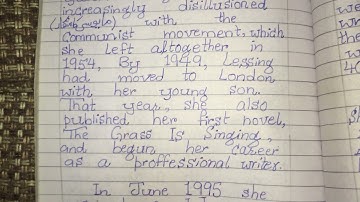 increasingly disillusioned
with the
Communist movement, which
she left altogether in
1954, By 1949, Lessing
had moved to London
with her young son.
That year, she also
published, her first novel,
The Grass Is Singing,
and begun her career
as a proffessional writer.
In June 1995 she
we
40